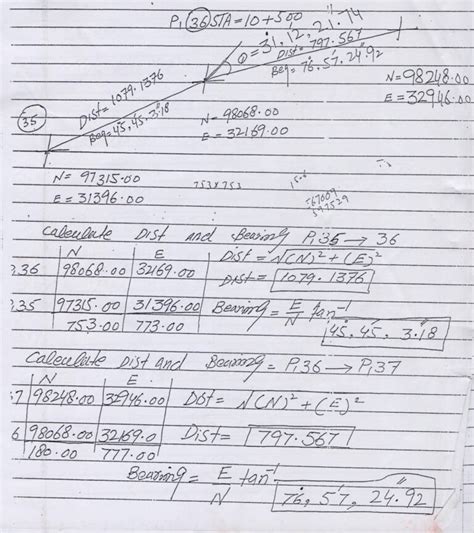 P, 36 STA = 10+500
Φ = 31, 12, 21.74
Dist = 797.567
Beg = 76.57.24.92
Dist = 1079.1376
Beg = 45,45.3.18
N = 98248.00
E = 32946.00
35
N = 98068.00
E = 32169.00
N = 97315.00
E = 31396.00
753x753
567009
597529
Calculate Dist and Bearing P,35 → 36
N E Dist = √(N)² + (E)²
36 98068.00 32169.00 Dist = 1079.1376
35 97315.00 31396.00 Bearing = E/N tan⁻¹
753.00 773.00 45, 45, 3.18
Calculate Dist and Bearing = P,36 → P,37
N E
7 98248.00 32946.00 Dist = √(N)² + (E)²
6 98068.00 32169.0 Dist = 797.567
180.00 777.00
Bearing = E/N tan⁻¹
76, 57, 24.92